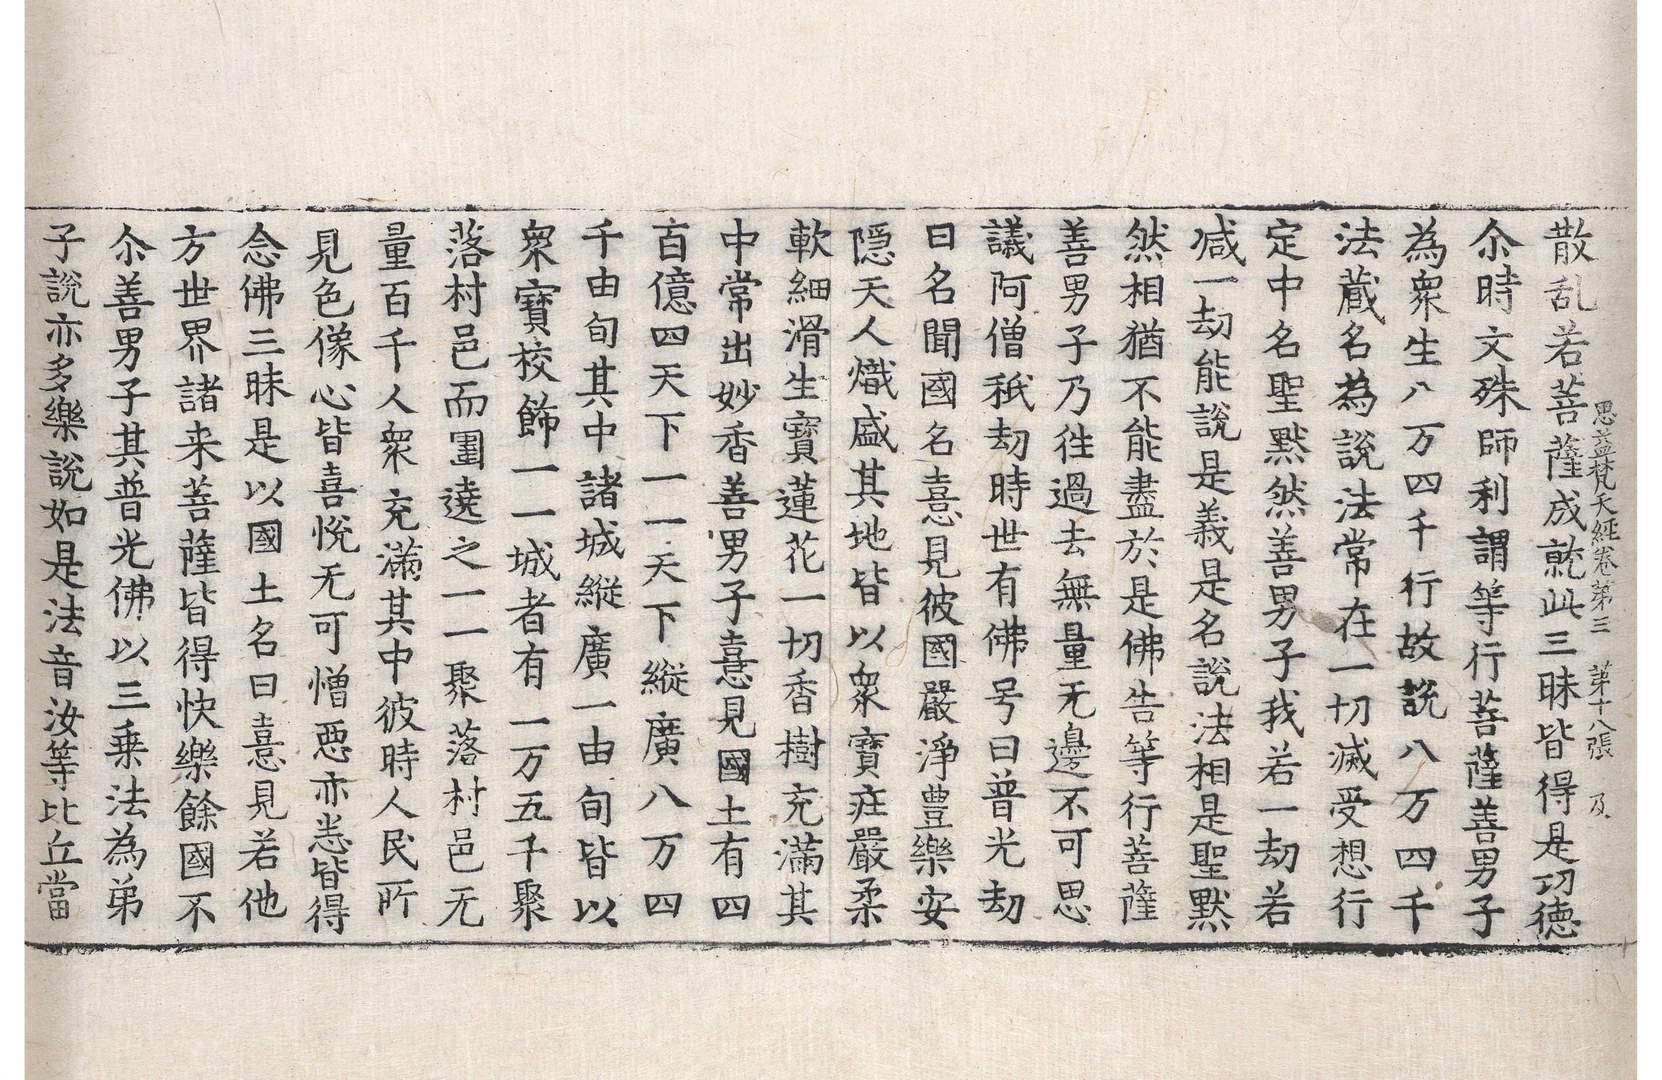 思益梵天經卷第三　第十八張　及
散乱若菩薩成就此三昧皆得是功德
尒時文殊師利謂等行菩薩善男子
為衆生八万四千行故說八万四千
法蔵名為說法常在一切滅受想行
定中名聖黙然善男子我若一劫若
减一劫能說是義是名說法相是聖黙
然相猶不能盡於是佛告等行菩薩
善男子乃徃過去無量无邊不可思
議阿僧秖劫時世有佛号曰普光劫
曰名聞國名憙見彼國嚴淨豊樂安
隠天人熾盛其地皆以衆寶莊嚴柔
軟細滑生寶蓮花一切香樹充滿其
中常出妙香善男子憙見國土有四
百億四天下一一天下縱廣八万四
千由旬其中諸城縱廣一由旬皆以
衆寶校飾一一城者有一万五千聚
落村邑而圍遶之一一聚落村邑无
量百千人衆充滿其中彼時人民所
見色像心皆喜悅无可憎惡亦悉皆得
念佛三昧是以國土名曰憙見若他
方世界諸来菩薩皆得快樂餘國不
尒善男子其普光佛以三乗法為弟
子說亦多樂說如是法音汝等比丘當